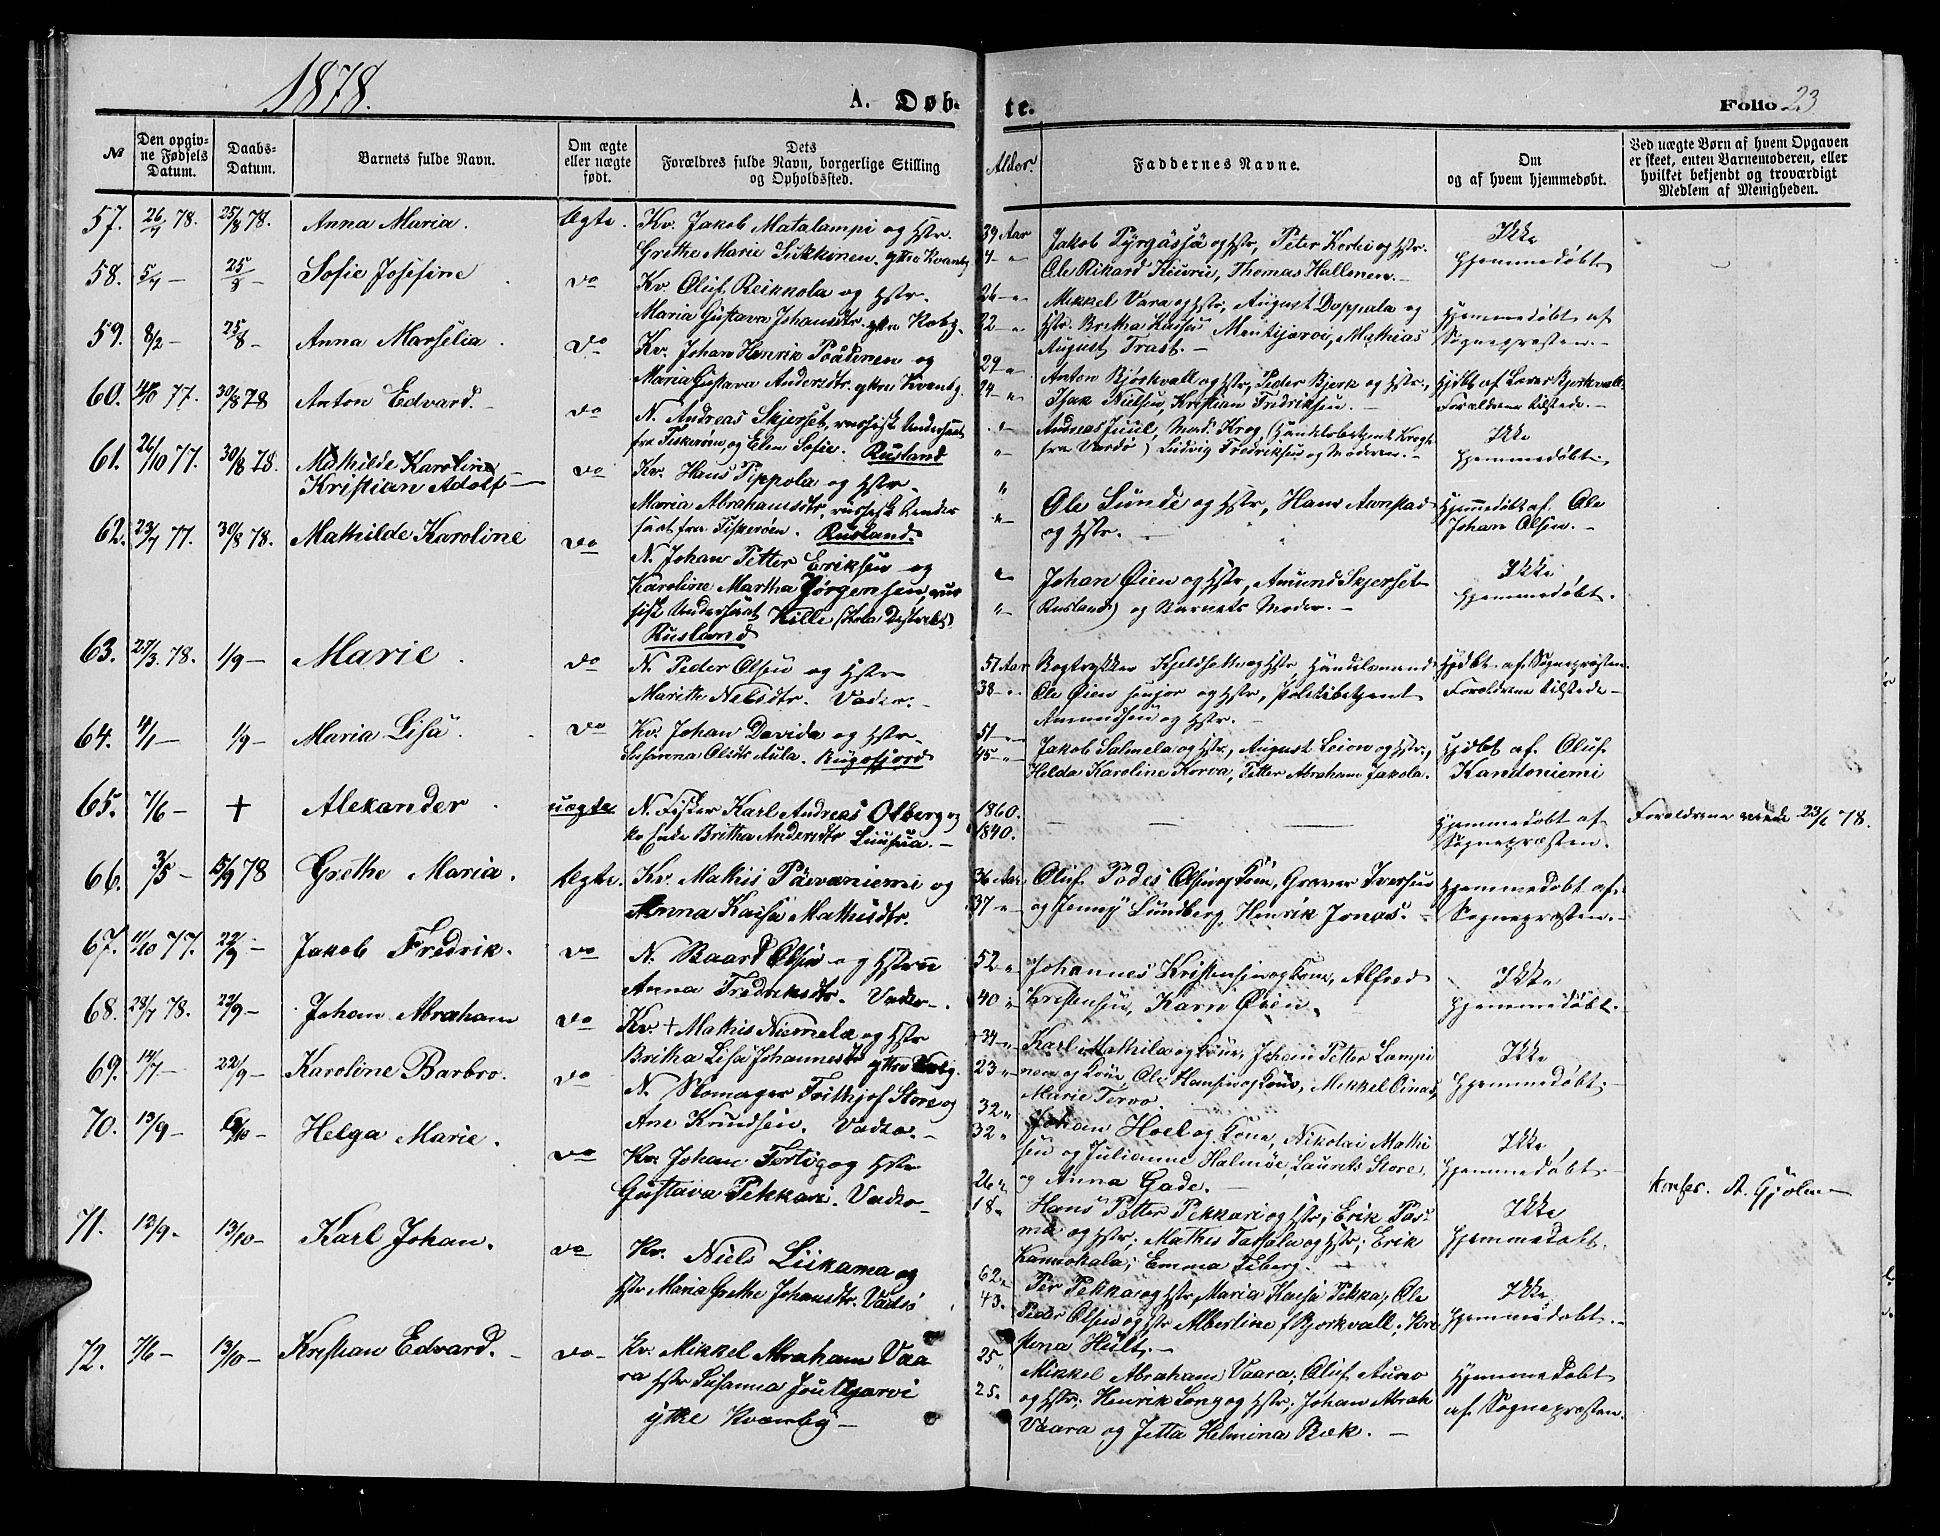 1878.
A. Døb-
te.
Folio 23
№
Den opgiv-
ne Fødsels
Datum.
Daabs-
Datum.
Barnets fulde Navn.
Om ægte
eller uægte
født.
Dets
Forældres fulde Navn, borgerlige Stilling
og Opholdssted.
Alder.
Faddernes Navne.
Om
og af hvem hjemmedøbt.
Ved uægte Børn af hvem Opgaven
er skeet, enten Barnemoderen, eller
hvilket bekjendt og troværdigt
Medlem af Menigheden.
57. 78. 25/8 78. Anna Maria. Ægte. Kv. Jakob Matalampi og Hstr.
Grethe Marie
39 Aar
Jakob og Hstr, Peter og Hstr.
Ole Rikard Thomas
Ikke
hjemmedøbt
58. 25/8 Sofie Josefine do Kv. Oluf Reikkola og Hstr.
Maria Gustava Johansdtr.
26
22
Mikkel Vara og Hstr, August og
Hstr. Britha Kaisa Mathias
August Trast.
Hjemmedøbt af
Sognepræsten.
59. 8/2 - 25/8 - Anna Marselia. do Kv. Johan Henrik og
Maria Gustava Andersdtr.
29
24
Anton Bjørkvall og Hstr, Peder Bjerk og Hstr,
Isak Nielsen, Kristian Fredriksen.
Hjdbt af Bjorkvall
Forældrene tilstede.
60. 77. 30/8 78 Anton Edvard. do N. Andreas Skjerset, russisk Undersaat
fra Fiskerøen, og Elen Sofie. Rusland
Andreas Juul, Mad. Krog
fra Vardø) Ludvig Fredriksen og Moderen.
Ikke
hjemmedøbt.
61. 26/10 77. 30/8 78. Mathilde Karoline
Kristian Adolf do Kv. Hans Pippola og Hstr.
Maria Abrahamsdtr, russisk Under
saat fra Fiskerøen. Rusland.
Ole Sunde og Hstr, Hans Aarestad
og Hstr.
Hjemmedøbt af Ole
Johan Olsen.
62. 23/7 77. 30/8 78. Mathilde Karoline do N. Johan Petter Eriksen og
Karoline Martha Jørgensen, rus
sisk Undersaat Kille (Kola Destrikt)
Rusland
Johan Øien og Hstr, Amund Skjerset
(Rusland) og Barnets Moder.
Ikke
hjemmedøbt.
63. 27/3. 78. 1/9 - Marie. do N. Peder Olsen og Hstr
Marithe Nilsdtr. Vadsø.
51 Aar
38
Bogtrykker Kjeldseth og Hstr, Handelsmand
Ole Øien senjor og Hstr, Politibetjent
Amundsen og Hstr.
Hjdbt af Sognepræsten.
Forældrene tilstede
64. 4/1 - 1/9 - Maria Lisa. do Kv. Johan Davida og Hstr.
Susanna Olsdtr Aula. Bugøfjord
51
45
Jakob Salmela og Hstr, August Leion og Hstr,
Helda Karoline Korva, Petter Abraham Jakola.
Hjdbt af Oluf
Kandoniemi
65. 7/6 - + Alexander. uægte N. Fisker Karl Andreas Olberg og
Britha Andersdtr
1860.
1840.
Hjemmedøbt af
Sognepræsten.
Forældrene viede 23/6 78.
66. 3/5 - 15/9 78 Grethe Maria. Ægte. Kv. Mathis Päivaniemi og
Anna Kaisa Mathisdtr.
36 Aar
37
Oluf Olsen og Kone, Graver Iversen
og Jenny Lundberg, Henrik Jonas.
Hjemmedøbt af
Sognepræsten.
67. 11/10 77. 22/9 - Jakob Fredrik. do N. Baard Olsen og Hstru
Anna Fredriksdtr. Vadsø.
52
40
Johannes Kristensen og Kone, Alfred
Kristensen, Karn Øien.
Ikke
hjemmedøbt.
68. 28/7 78. 22/9 - Johan Abraham do Kv. + Mathis Niemela og Hstr
Britha Lisa Johannesdtr
34
23
Karl Mathila og Kone, Johan Petter Lampi
nen og Kone, Ole Hansen og Kone, Mikkel Oinas,
Marie Tervo.
Ikke
hjemmedøbt.
69. 14/7 - 22/9 - Karoline Barbro. do N. Skomager Frithjof Store og
Ane Knudsen. Vadsø.
32
32
Johan Hoel og Kone, Nikolai Mathi
sen og Julianne Halmøe, Laurits Store,
og Anna Gade.
Ikke
hjemmedøbt.
70. 13/9 - 6/10 - Helga Marie. do Kv. Johan Fertig og Hstr
Gustava Pekkari. Vadsø
26
18
Hans Petter Pekkari og Hstr; Erik Pas
ma og Hstr; Mathis Tassola og Hstr; Erik
Kannokala; Emma Isberg.
Ikke
hjemmedøbt.
A. Gjølm
71. 12/9. 13/10 - Karl Johan. do Kv. Niels Liikama og
Hstr Maria Grethe Johansdtr. Vadsø
62
43.
Per Pekka og Hstr, Maria Kaisa Pekka; Ole
Peder Olsen og Hstr Albertine f Bjorkvall; Kri
stina Hult.
Ikke
hjemmedøbt.
72. 7/6 - 13/10 - Kristian Edvard. do Kv. Mikkel Abraham Vaa
ra Hstr Susanna
ytre Kvænby
25
25.
Mikkel Abraham Vaara; Oluf Aurvo
og Hstr; Henrik Lang og Hstr; Johan Abrah
Vaara og Jetta Helmina Bæk.
Hjemmedøbt
af Sognepræsten.